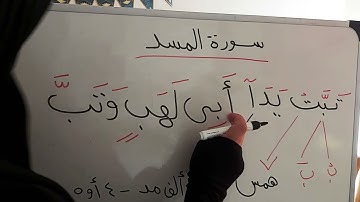 سورة المسد
تَبَّتْ يَدَآ أَبِى لَهَبٍ وَتَبَّ
بْ بَ
همس ألف مد - ٤ أو ٥